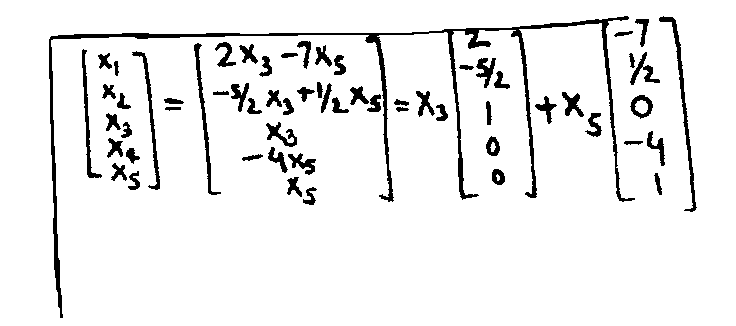 [x₁ x₂ x₃ x₄ x₅] = [2x₃ -7x₅ -5/2 x₃ + 1/2 x₅ x₃ -4x₅ x₅] = x₃ [2 -5/2 1 0 0] + x₅ [-7 1/2 0 -4 1]